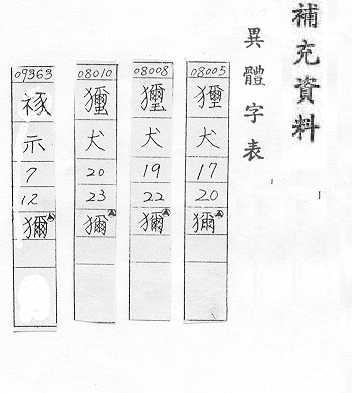 補充資料
異體字表
08005
犬
17
20
獮
08008
犬
19
22
獮
08010
犬
20
23
獮
09363
示
7
12
獮